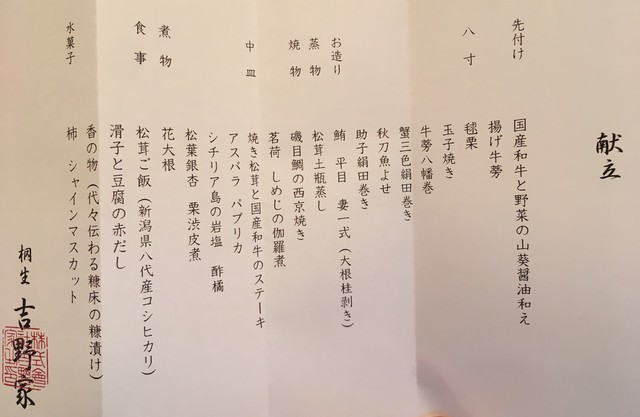 献立
先付け
国産和牛と野菜の山葵醤油和え
八寸
揚げ牛蒡
毬栗
玉子焼き
牛蒡八幡巻
蟹三色絹田巻き
秋刀魚よせ
助子絹田巻き
お造り
鮪 平目 妻一式(大根桂剥き)
蒸物
松茸土瓶蒸し
焼物
磯目鯛の西京焼き
茗荷 しめじの伽羅煮
中皿
焼き松茸と国産和牛のステーキ
アスパラ パプリカ
シチリア島の岩塩 酢橘
松葉銀杏 栗渋皮煮
煮物
花大根
食事
松茸ご飯(新潟県八代産コシヒカリ)
滑子と豆腐の赤だし
香の物(代々伝わる糠床の糠漬け)
水菓子
柿 シャインマスカット
桐生 吉野家